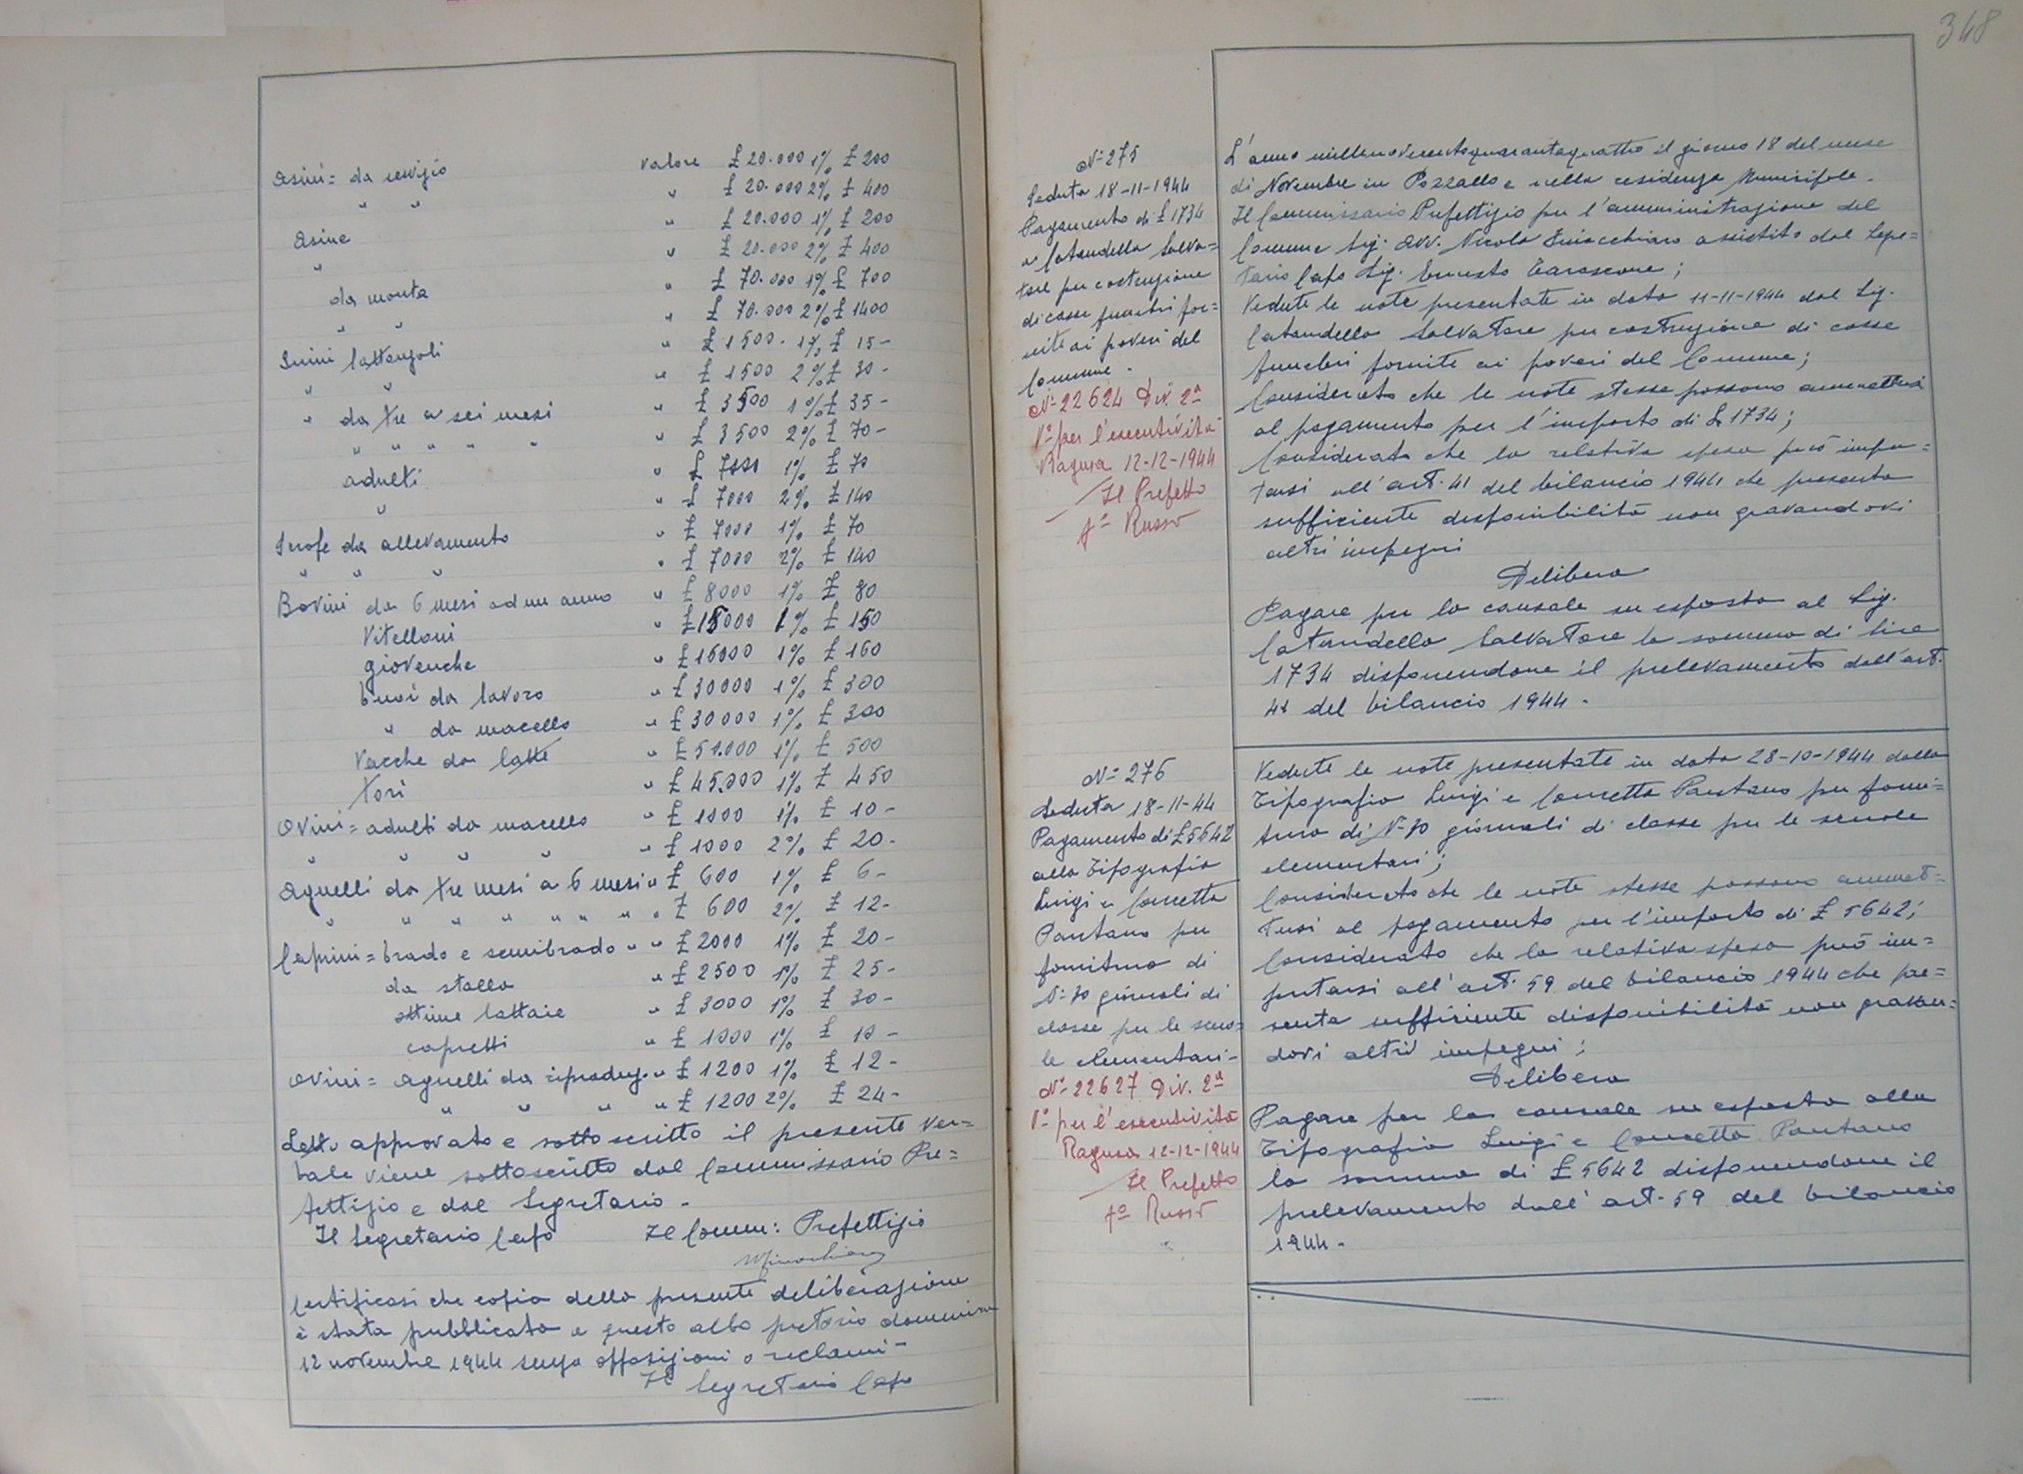 Asini = da servizio valore £ 20.000 1% £ 200
" " " £ 20.000 2% £ 400
Asine " £ 20.000 1% £ 200
" " £ 20.000 2% £ 400
da monta " £ 70.000 1% £ 700
" " " £ 70.000 2% £ 1400
Suini lattonzoli " £ 1500 - 1% £ 15 -
" " " £ 1500 2% £ 30 -
" da tre a sei mesi " £ 3500 1% £ 35 -
" " " " " " £ 3500 2% £ 70 -
adulti " £ 7000 1% £ 70
" " £ 7000 2% £ 140
Scrofe da allevamento " £ 7000 1% £ 70
" " " " £ 7000 2% £ 140
Bovini da 6 mesi ad un anno " £ 8000 1% £ 80
Vitelloni " £ 15000 1% £ 150
giovenche " £ 16000 1% £ 160
buoi da lavoro " £ 30000 1% £ 300
" da macello " £ 30000 1% £ 300
Vacche da latte " £ 50.000 1% £ 500
Tori " £ 45.000 1% £ 450
Ovini = adulti da macello " £ 1000 1% £ 10 -
" " " " " £ 1000 2% £ 20 -
Agnelli da tre mesi a 6 mesi " £ 600 1% £ 6 -
" " " " " " " " £ 600 2% £ 12 -
Caprini = brado e semibrado " " £ 2000 1% £ 20 -
da stalla " £ 2500 1% £ 25 -
ottime lattaie " £ 3000 1% £ 30 -
capretti " £ 1000 1% £ 10 -
Ovini = agnelli da riproduz. " £ 1200 1% £ 12 -
" " " " £ 1200 2% £ 24 -
Letto approvato e sottoscritto il presente ver=
bale viene sottoscritto dal Commissario Pre=
fettizio e dal Segretario -
Il Segretario Capo Il Comm: Prefettizio
Certificasi che copia della presente deliberazione
è stata pubblicata a questo albo pretorio domenica
12 novembre 1944 senza opposizioni o reclami -
Il Segretario Capo
348
N° 275
Seduta 18-11-1944
Pagamento di £ 1734
a Catandella Salva=
tore per costruzione
di casse funebri for=
nite ai poveri del
Comune -
N° 22624 Div. 2ª
V° per l'esecutività
Ragusa 12-12-1944
Il Prefetto
f° Russo
L'anno millenovecentoquarantaquattro il giorno 18 del mese
di Novembre in Pozzallo e nella residenza Municipale -
Il Commissario Prefettizio per l'amministrazione del
Comune Sig. Avv. Nicola assistito dal Segre=
tario Capo Sig. Ernesto Tarascone;
Vedute le note presentate in data 11-11-1944 dal Sig.
Catandella Salvatore per costruzione di casse
funebri fornite ai poveri del Comune;
Considerato che le note stesse possono ammettersi
al pagamento per l'importo di £ 1734;
Considerato che la relativa spesa può impu=
tarsi all'art. 41 del bilancio 1944 che presenta
sufficiente disponibilità non gravandovi
altri impegni
Delibera
Pagare per la causale su esposta al Sig.
Catandella Salvatore la somma di lire
1734 disponendone il prelevamento dall'art.
41 del bilancio 1944 -
N° 276
Seduta 18-11-44
Pagamento di £ 5642
alla Tipografia
Luigi e Concetta
Pantano per
fornitura di
N° 30 giornali di
classe per le scuo=
le elementari -
N° 22627 Div. 2ª
V° per l'esecutività
Ragusa 12-12-1944
Il Prefetto
f° Russo
Vedute le note presentate in data 28-10-1944 dalla
Tipografia Luigi e Concetta Pantano per forni=
tura di N° 30 giornali di classe per le scuole
elementari;
Considerato che le note stesse possono ammet=
tersi al pagamento per l'importo di £ 5642;
Considerato che la relativa spesa può im=
putarsi all'art. 59 del bilancio 1944 che pre=
senta sufficiente disponibilità non gravan=
dovi altri impegni;
Delibera
Pagare per la causale su esposta alla
Tipografia Luigi e Concetta Pantano
la somma di £ 5642 disponendone il
prelevamento dall'art. 59 del bilancio
1944 -